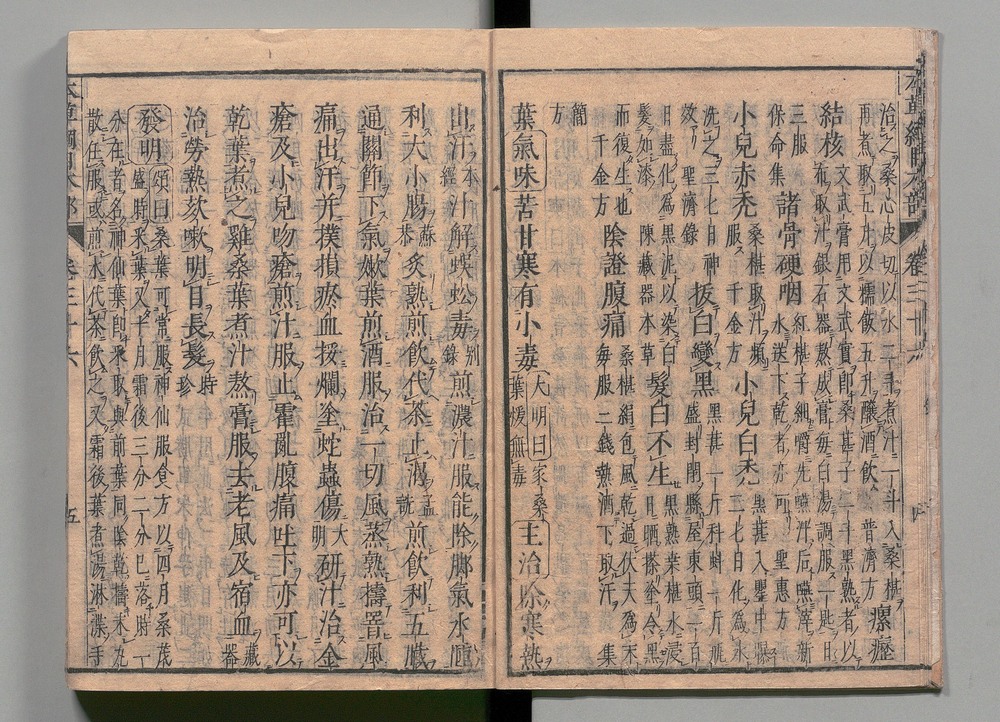 本草綱目木部 卷三十六 四
治之桑心皮切以水二斗煮汁一斗入桑椹
再煮取五升以糯飯五升釀酒飲 普濟方 瘰癧
結核 文武膏用文武實即桑葚子二斗黑熟者以布取汁銀石器熬成膏每白湯調服一匙日
三服 保命集 諸骨硬咽 紅椹子細嚼先嚥汁后嚥滓新水送下乾者亦可 聖惠方
小兒赤禿 桑椹取汁頻服 千金方 小兒白禿 黑葚入罌中曝三七日化為水
洗之三七日神效 聖濟錄 拔白變黑 黑葚一斤科蚪一斤瓶盛封閉懸屋東頭一百
日盡化為黑泥以染白髮如漆 陳藏器本草 髮白不生 黑熟桑椹水浸日晒搽塗令黑
而復生也 千金方 陰證腹痛 桑椹絹包風乾過伏天為末每服三錢熱酒下取汗 集
簡方
葉氣味苦甘寒有小毒 大明曰家桑葉煖無毒 主治除寒熱
出汗 本經 汁解蜈蚣毒 別錄 煎濃汁服能除腳氣水腫
利大小腸 蘇恭 炙熟煎飲代茶止渴 孟詵 煎飲利五臟
通關節下氣嫩葉煎酒服治一切風蒸熟擣罯風
痛出汗并撲損瘀血挼爛塗蛇蟲傷 大明 研汁治金
瘡及小兒吻瘡煎汁服止霍亂腹痛吐下亦可以
乾葉煮之雞桑葉煮汁熬膏服去老風及宿血 藏器
治勞熱欬嗽明目長髮 時珍
發明 頌曰桑葉可常服神仙服食方以四月桑茂盛時采葉又十月霜後三分二分已落時一
分在者名神仙葉即采取與前葉同陰乾擣末丸
散任服或煎水代茶飲之又霜後葉煮湯淋渫手
本草綱目木部 卷三十六 五